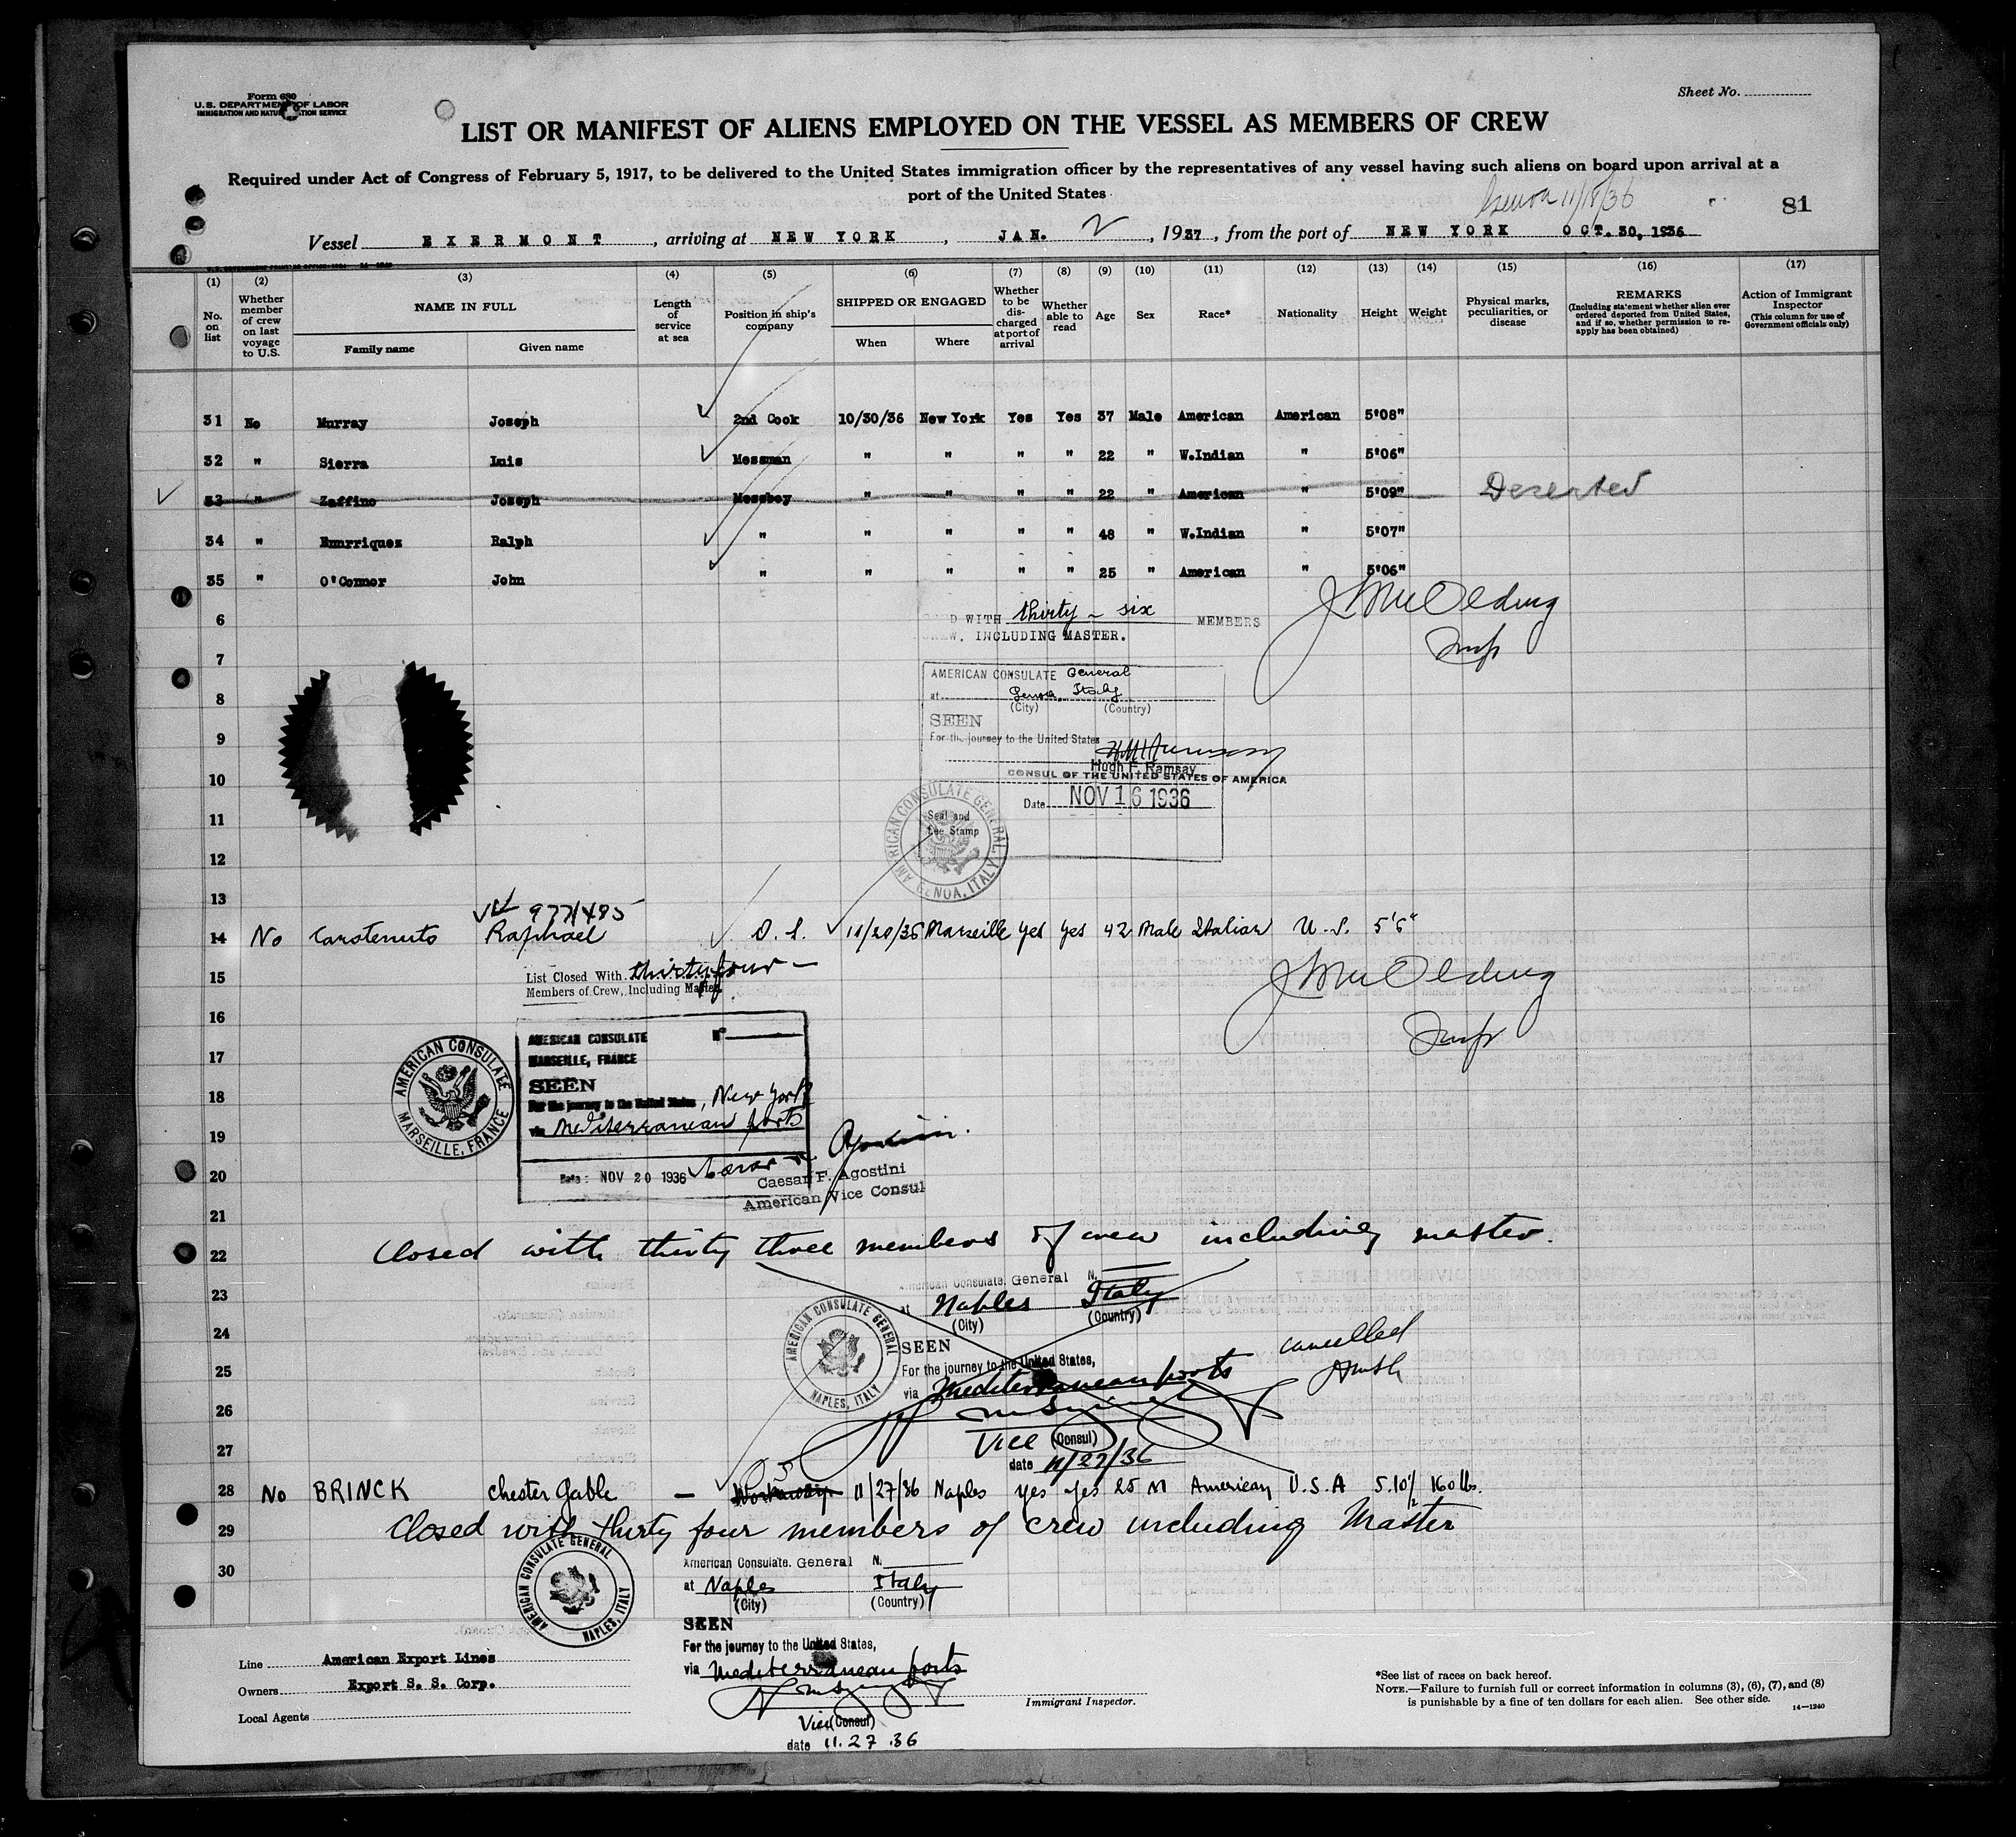 Form 680
U.S. DEPARTMENT OF LABOR
IMMIGRATION AND NATURALIZATION SERVICE
Sheet No.
LIST OR MANIFEST OF ALIENS EMPLOYED ON THE VESSEL AS MEMBERS OF CREW
Required under Act of Congress of February 5, 1917, to be delivered to the United States immigration officer by the representatives of any vessel having such aliens on board upon arrival at a
port of the United States
Genoa 11/18/36
81
Vessel EXERMONT, arriving at NEW YORK, JAN. 2, 1937, from the port of NEW YORK OCT. 30, 1936
(1) (2) (3) (4) (5) (6) (7) (8) (9) (10) (11) (12) (13) (14) (15) (16) (17)
No. on list
Whether member of crew on last voyage to U.S.
NAME IN FULL
Family name
Given name
Length of service at sea
Position in ship's company
SHIPPED OR ENGAGED
When
Where
Whether to be discharged at port of arrival
Whether able to read
Age
Sex
Race*
Nationality
Height
Weight
Physical marks, peculiarities, or disease
REMARKS
(Including statement whether alien ever ordered deported from United States, and if so, whether permission to reapply has been obtained)
Action of Immigrant Inspector
(This column for use of Government officials only)
31 No Murray Joseph 2nd Cook 10/30/36 New York Yes Yes 37 Male American American 5'08"
32 " Sierra Luis Messman " " " " 22 " W.Indian " 5'06"
33 " Zaffino Joseph Messboy " " " " 22 " American " 5'09" Deserted
34 " Enurriquez Ralph " " " " " 48 " W.Indian " 5'07"
35 " O'Connor John " " " " " 25 " American " 5'06"
6
D WITH thirty - six MEMBERS
CREW, INCLUDING MASTER.
Insp
7
8
9
10
11
12
13
AMERICAN CONSULATE General
at Genoa, Italy
(City) (Country)
SEEN
For the journey to the United States
Hugh F. Ramsay
CONSUL OF THE UNITED STATES OF AMERICA
Date NOV 16 1936
Seal and
Fee Stamp
AMERICAN CONSULATE GENERAL
GENOA, ITALY
977495
14 No Carotenuto Raphael O. S. 11/20/36 Marseille yes yes 42 Male Italian U. S. 5'6"
List Closed With thirty four
Members of Crew, Including Master
Insp
15
16
17
18
19
20
21
AMERICAN CONSULATE Nº
MARSEILLE, FRANCE
SEEN
For the journey to the United States, New York
via Mediterranean ports
Date: NOV 20 1936
Caesar F. Agostini
American Vice Consul
AMERICAN CONSULATE
MARSEILLE, FRANCE
22 Closed with thirty three members of crew including master.
23
24
25
26
27
American Consulate. General N.
at Naples Italy
(City) (Country)
SEEN
For the journey to the United States,
via Mediterranean ports
cancelled
Vice (Consul)
date 11/27/36
AMERICAN CONSULATE GENERAL
NAPLES, ITALY
28 No BRINCK Chester Gable — Workaway OS 11/27/36 Naples yes yes 25 M American U.S.A 5.10½ 160 lbs.
29 Closed with thirty four members of crew including Master
30
American Consulate. General N.
at Naples Italy
(City) (Country)
SEEN
For the journey to the United States,
via Mediterranean ports
Vice (Consul)
date 11.27.36
AMERICAN CONSULATE GENERAL
NAPLES, ITALY
Line American Export Lines
Owners Export S. S. Corp.
Local Agents
Immigrant Inspector.
*See list of races on back hereof.
NOTE.—Failure to furnish full or correct information in columns (3), (6), (7), and (8)
is punishable by a fine of ten dollars for each alien. See other side.
14—1240